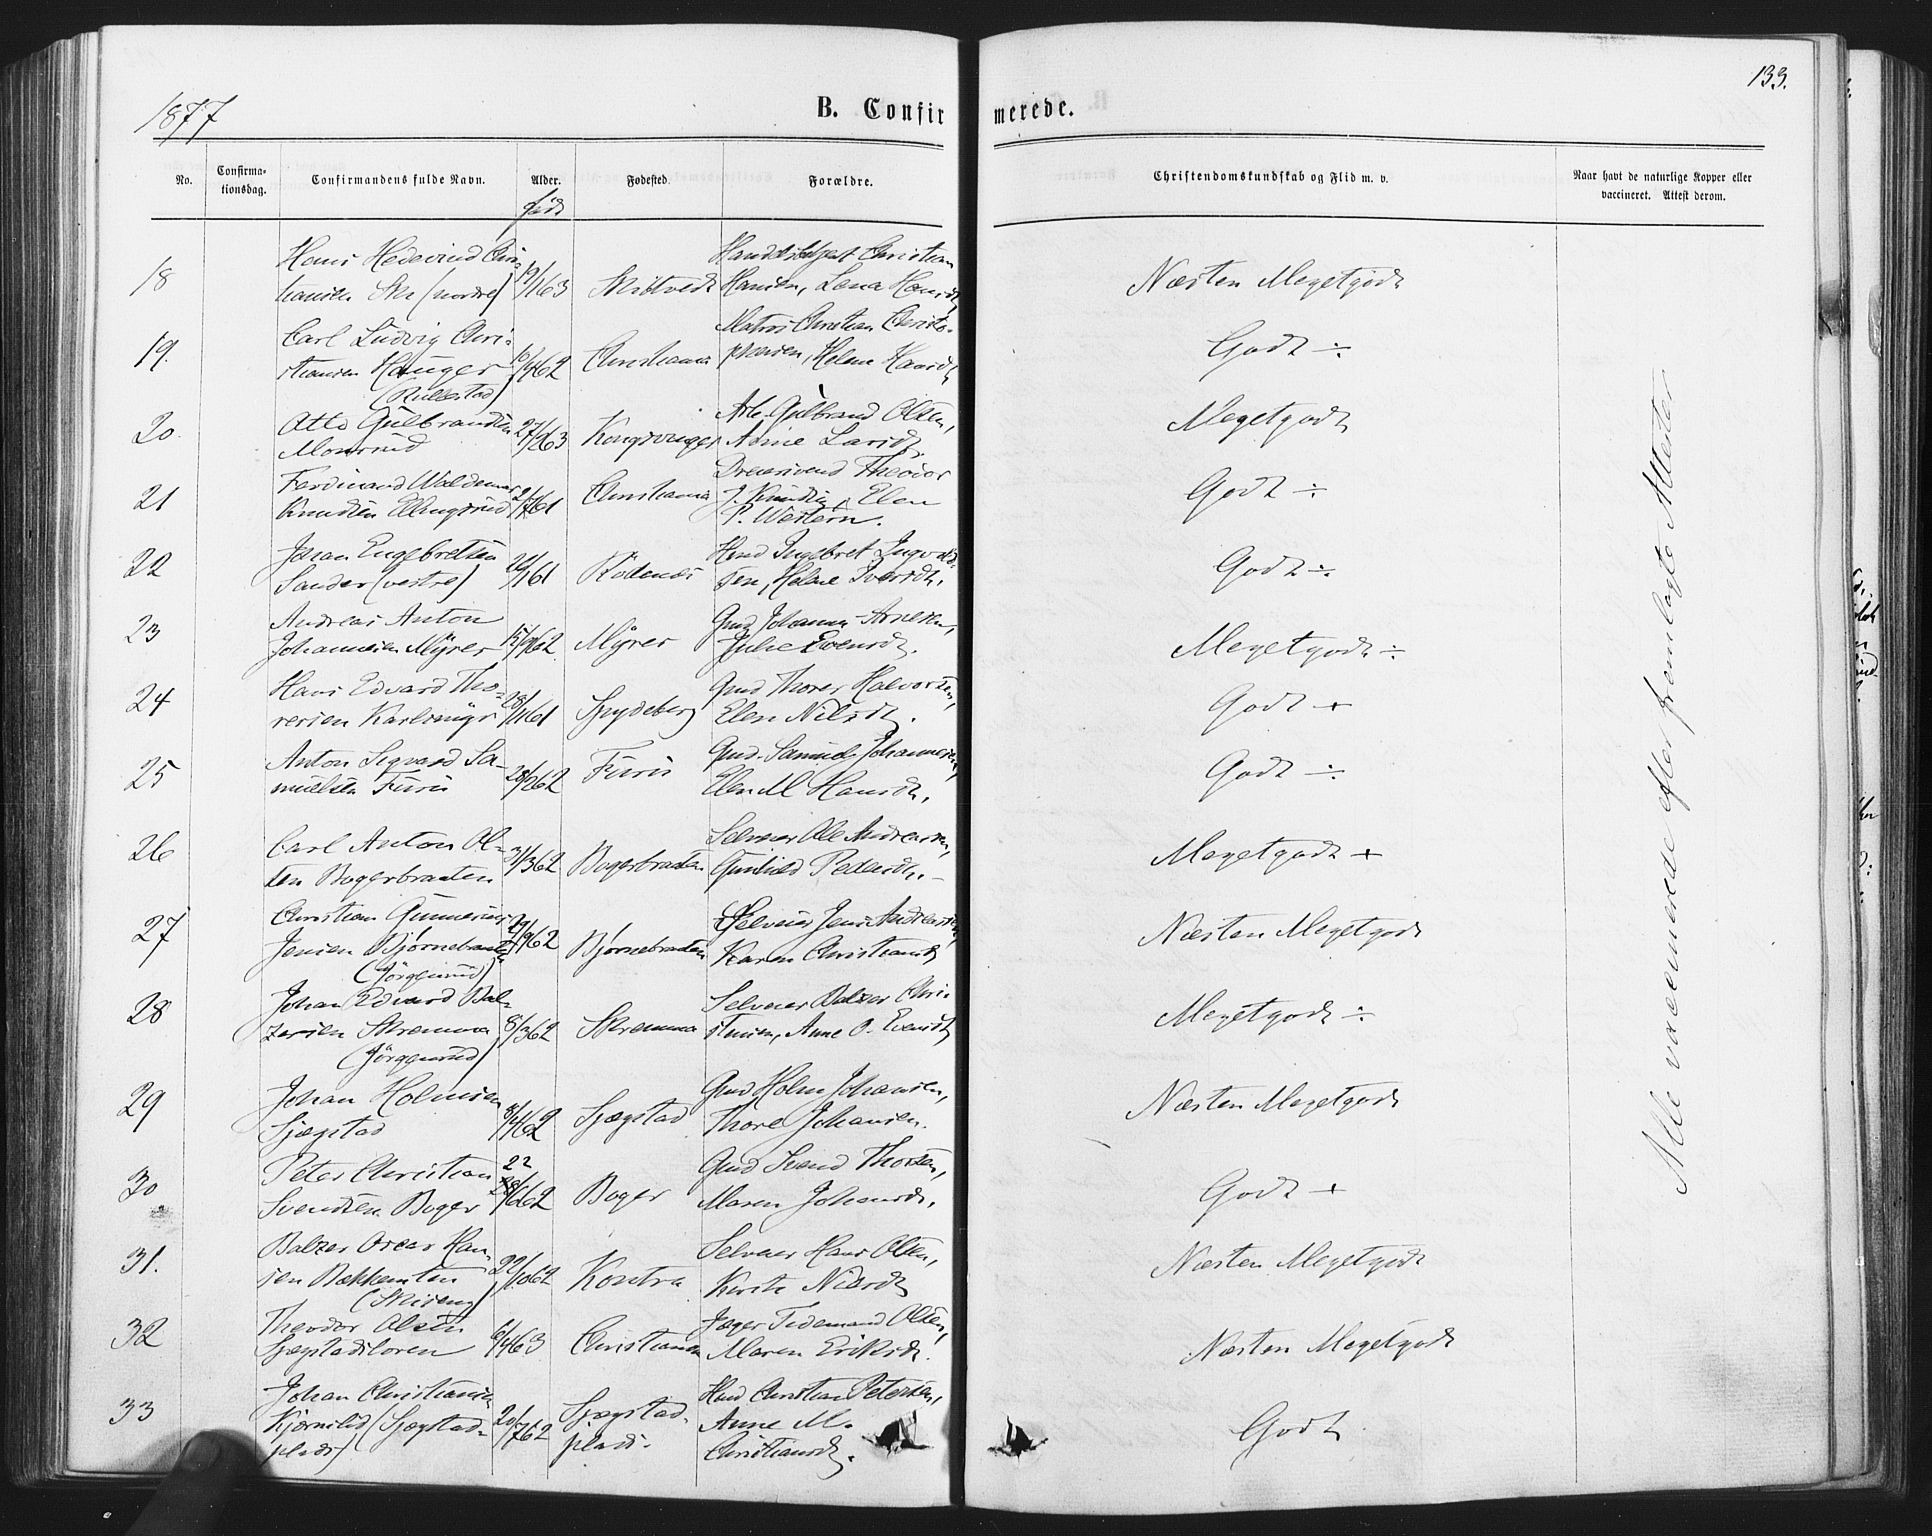 1877
B. Confirmerede.
133.
No.
Confirma-
tionsdag.
Confirmandens fulde Navn.
Alder.
født
Fødested.
Forældre.
Christendomskundskab og Flid m. v.
Naar havt de naturlige Kopper eller
vaccineret. Attest derom.
18
Hans Hedevind Chri-
stiansen Ski (nordre)
Skibtvedt
Christian
Hansen, Lena Hansdt.
Næsten Megetgodt
19.
Carl Ludvig Chri-
stiansen Hauger
(Rullestad)
Christiania
Matros Christian Christo-
phersen, Helene Hansdt
Godt ÷
20
Otto Gulbrandsen
Monsrud
27/
63
Kongsvinger
Arb. Gulbrand Olsen,
Anne Larsdt.
Megetgodt
21
Ferdinand Waldemar
Knudsen Ellingsrud
Christiania
Dreiersvend Theodor
J. Knudsen, Elen
P. Western.
Godt ÷
22
Johan Engebretsen
Sander (vestre)
Rødenes
Hmd Ingebret Ingvald-
sen, Helene Iversdt.
Godt ÷
23
Andreas Anton
Johannesen Myrer
Myrer
Gmd Johannes Arnesen,
Julie Evensdt.
Megetgodt ÷
24
Hans Edvard Tho-
resen Karlsmyr
28/1 61
Spydeberg
Gmd Thorer Halvorsen,
Elen Nilsdt.
Godt +
25
Anton Sigvard Sa-
muelsen Furu
28/2 62
Furu
Gmd. Samuel Johannesen,
Elen M Hansdt.
Godt ÷
26
Carl Anton Ol-
sen Bogerbraaten
31/3 62
Bogerbraaten
Selveier Ole Andreassen,
Gunhild Pedersdt.
Megetgodt +
27
Christian Gunnerius
Jensen Bjørnebraaten
(Jørgensrud)
Bjørnebraaten
Selveier Jens Andreassen,
Karen Christiansdt
Næsten Megetgodt
28
Johan Edvard Bal-
zersen Skremma
(Jørgensrud)
8/3 62
Skremma
Selveier Balzer Chri-
stensen, Anne O. Evensdt
Megetgodt ÷
29
Johan Holmsen
Sjægstad
8/4 62
Sjægstad
Gmd Holm Johansen,
Thore Johansen.
Næsten Megetgodt
30
Peter Christian
Svendsen Boger
22
/6 62
Boger
Gmd Svend Thorsen,
Maren Johansdt.
Godt +
31.
Balzer Oscar Han-
sen Bækkemten
(Skiseng)
22/10 62
Kostra
Selveier Hans Olsen,
Kirsti Nilsdt
Næsten Megetgodt
32
Theodor Olsen
Sjægstadsloren
6/4 63
Christiania
Jæger Tidemand Olsen,
Maren Eriksdt.
Næsten Megetgodt
33
Johan Christiansen
Kjærnslid (Sjægstad-
plads)
20/7 62
Sjægstad-
plads.
Hmd Christian Petersen,
Anne M.
Christiansdt.
Godt
Alle vaccinerede efter fremlagte Attester